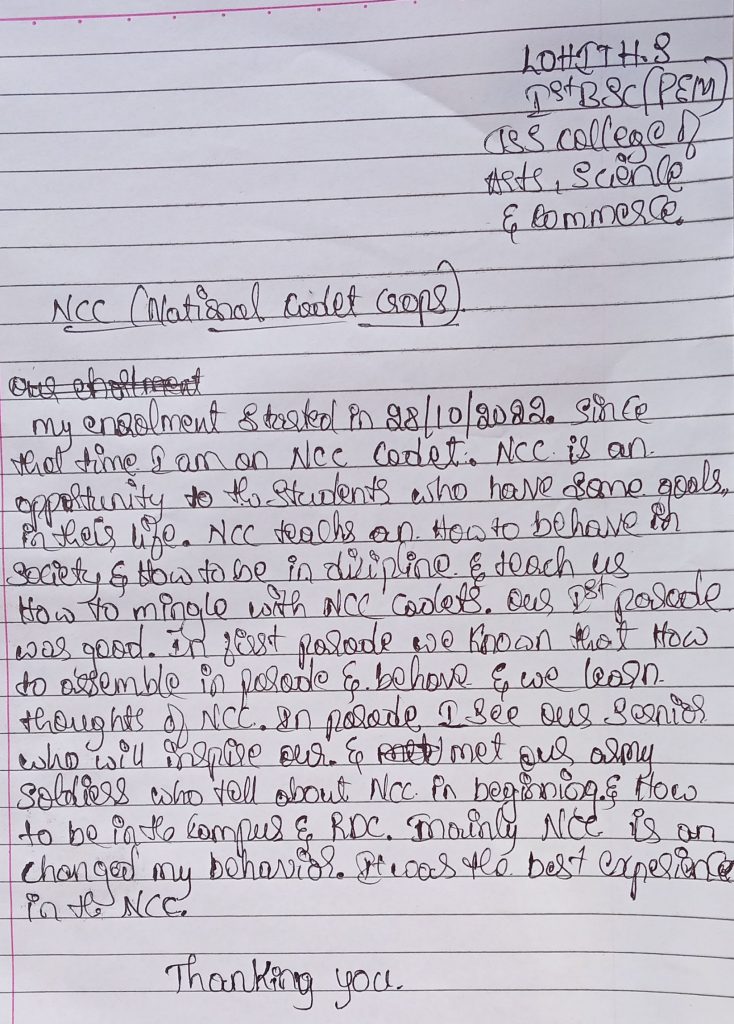 LOHITH.S
Ist BSC (PEM)
JSS college of
Arts, Science
& Commerce.
NCC (National Cadet Crops).
our enrollment
my enrolment started in 28/10/2022. Since
that time I am an NCC Cadet. NCC is an
opportunity to the students who have some goals,
in their life. NCC teachs an How to behave in
society & How to be in disipline & teach us
How to mingle with NCC Cadets. Our Ist parade
was good. In first parade we known that How
to assemble in parade & behave & we learn
thoughts of NCC. In parade I see our Sernior
who will inspire our. & met our army
soldiers who tell about NCC in begining & How
to be in the Campus & RDC. Mainly NCC is an
changed my behavior. It was the best experience
in the NCC.
Thanking you.